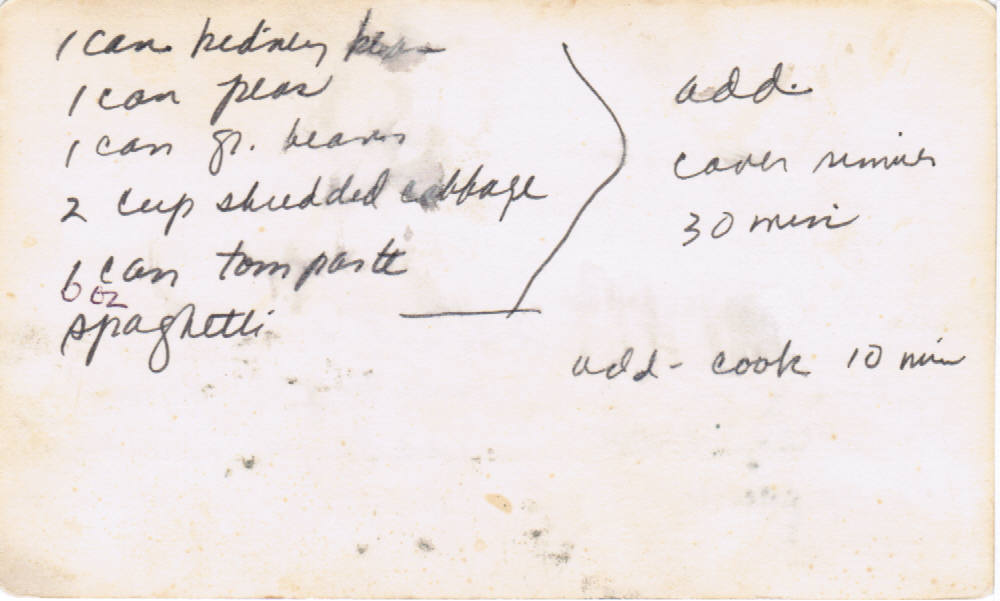 1 can kidney beans
1 can peas
1 can gr. beans
2 cup shredded cabbage
1 can tom paste
6 oz
spaghetti
add.
cover simmer
30 min
add - cook 10 min